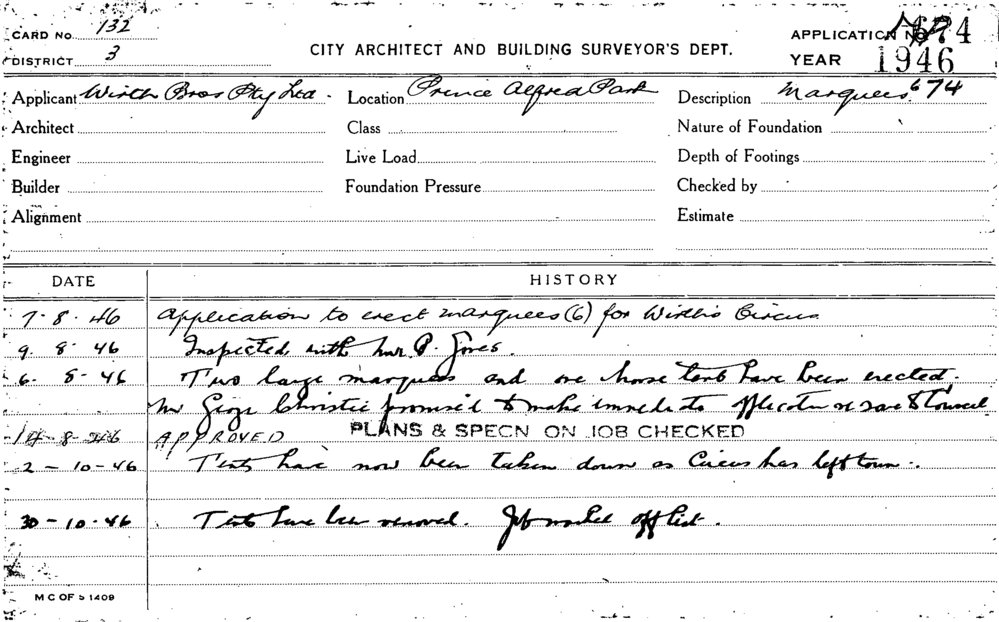 CARD No. 132
DISTRICT 3
CITY ARCHITECT AND BUILDING SURVEYOR'S DEPT.
APPLICATION No. 674
YEAR 1946
Applicant Wirth Bros Pty Ltd. Location Prince Alfred Park Description Marquees 674
Architect Class Nature of Foundation
Engineer Live Load Depth of Footings
Builder Foundation Pressure Checked by
Alignment Estimate
DATE HISTORY
7. 8. 46 Application to erect marquees (6) for Wirth's Circus
9. 8. 46 Inspected with Mr. P.
6. 8. 46 Two large marquees and one horse tent have been erected.
Mr George Christie promised to make immediate application re same to Council
14-8-46 APPROVED PLANS & SPECN ON JOB CHECKED
2-10-46 Tents have now been taken down as Circus has left town.
30-10-46 Tents have been removed. Job marked off list.
M C OF S 1409